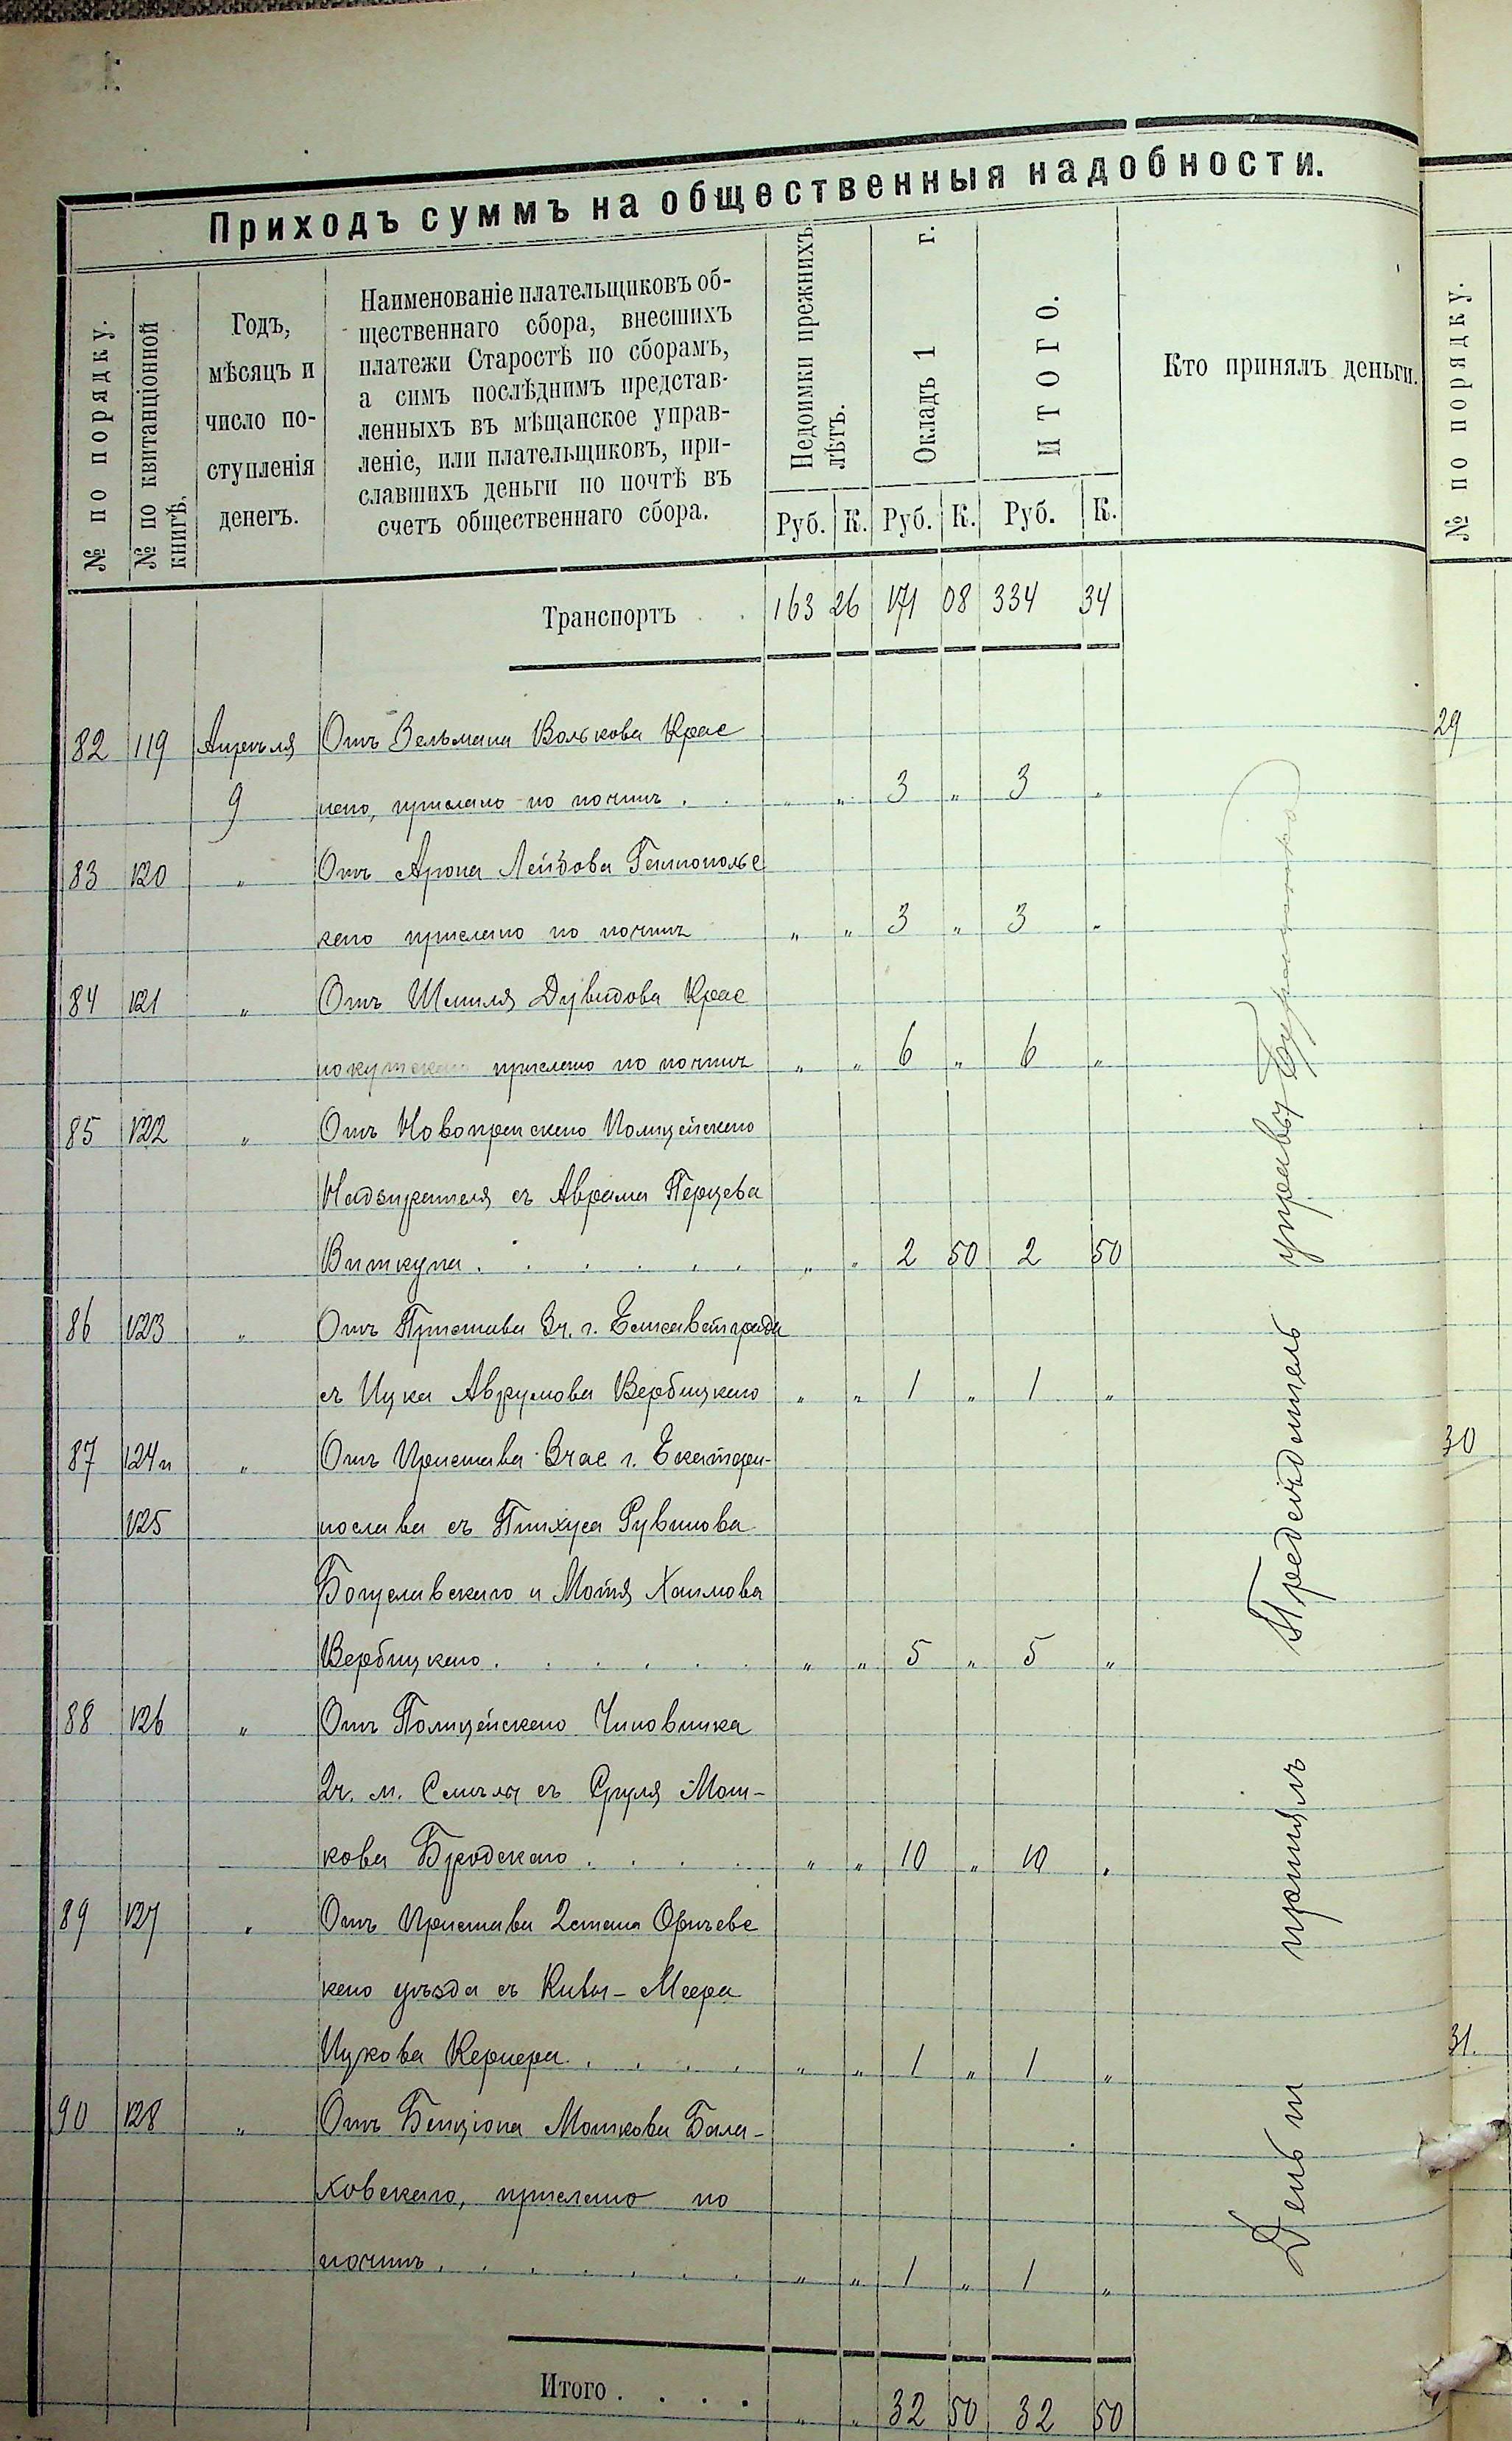 Приходъ суммъ на общественныя надобности.
№ по порядку.
№ по квитанціонной
книгѣ.
Годъ,
мѣсяцъ и
число по-
ступленія
денегъ.
Наименованіе плательщиковъ об-
щественнаго сбора, внесшихъ
платежи Старостѣ по сборамъ,
а симъ послѣднимъ представ-
ленныхъ въ мѣщанское управ-
леніе, или плательщиковъ, при-
славшихъ деньги по почтѣ въ
счетъ общественнаго сбора.
Недоимки прежнихъ
лѣтъ.
Окладъ 1 г.
ИТОГО.
Кто принялъ деньги.
№ по порядку.
Руб. К. Руб. К. Руб. К.
Транспортъ . . 163 26 171 08 334 34
82 119 Апрѣля Отъ Зельмана Волькова Крас
9 наго, прислано по почтѣ . . " " 3 " 3 "
83 120 " Отъ Арона Лейбова
скаго прислано по почтѣ " " 3 " 3 "
84 121 " Отъ Шмиля Дувидова Крас
нокутскаго прислано по почтѣ " " 6 " 6 "
85 122 " Отъ Новопражскаго Полицейскаго
Надзирателя съ Аврама Перцева
Виткупа . . . . . . " " 2 50 2 50
86 123 " Отъ Пристава 3ч. г. Елисаветграда
съ Ицка Аврумова Вербицкаго " " 1 " 1 "
87 124 и " Отъ Пристава 3 час г. Екатери-
125 нослава съ Пинхуса Рувинова
Богуславскаго и Мотя Хаимова
Вербицкаго . . . . . . " " 5 " 5 "
88 126 " Отъ Полицейскаго Чиновника
2ч. м. Смѣлы съ Сруля Мош-
кова Бродскаго . . . . " " 10 " 10 "
89 127 " Отъ Пристава 2 стана
скаго уѣзда съ Кивы-Меера
Ицкова Кернера . . . . " " 1 " 1 "
90 128 " Отъ Бенціона Мошкова Бала-
ховскаго, прислано по
почтѣ . . . . . . . " " 1 " 1 "
Итого . . . . " " 32 50 32 50
Деньги принялъ Предсѣдатель управы
29
30
31.